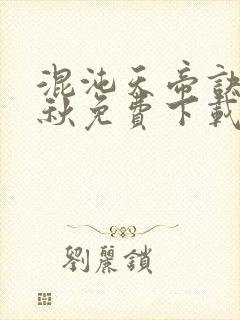 混沌天帝訣
秋免費下載
劉麗鎖